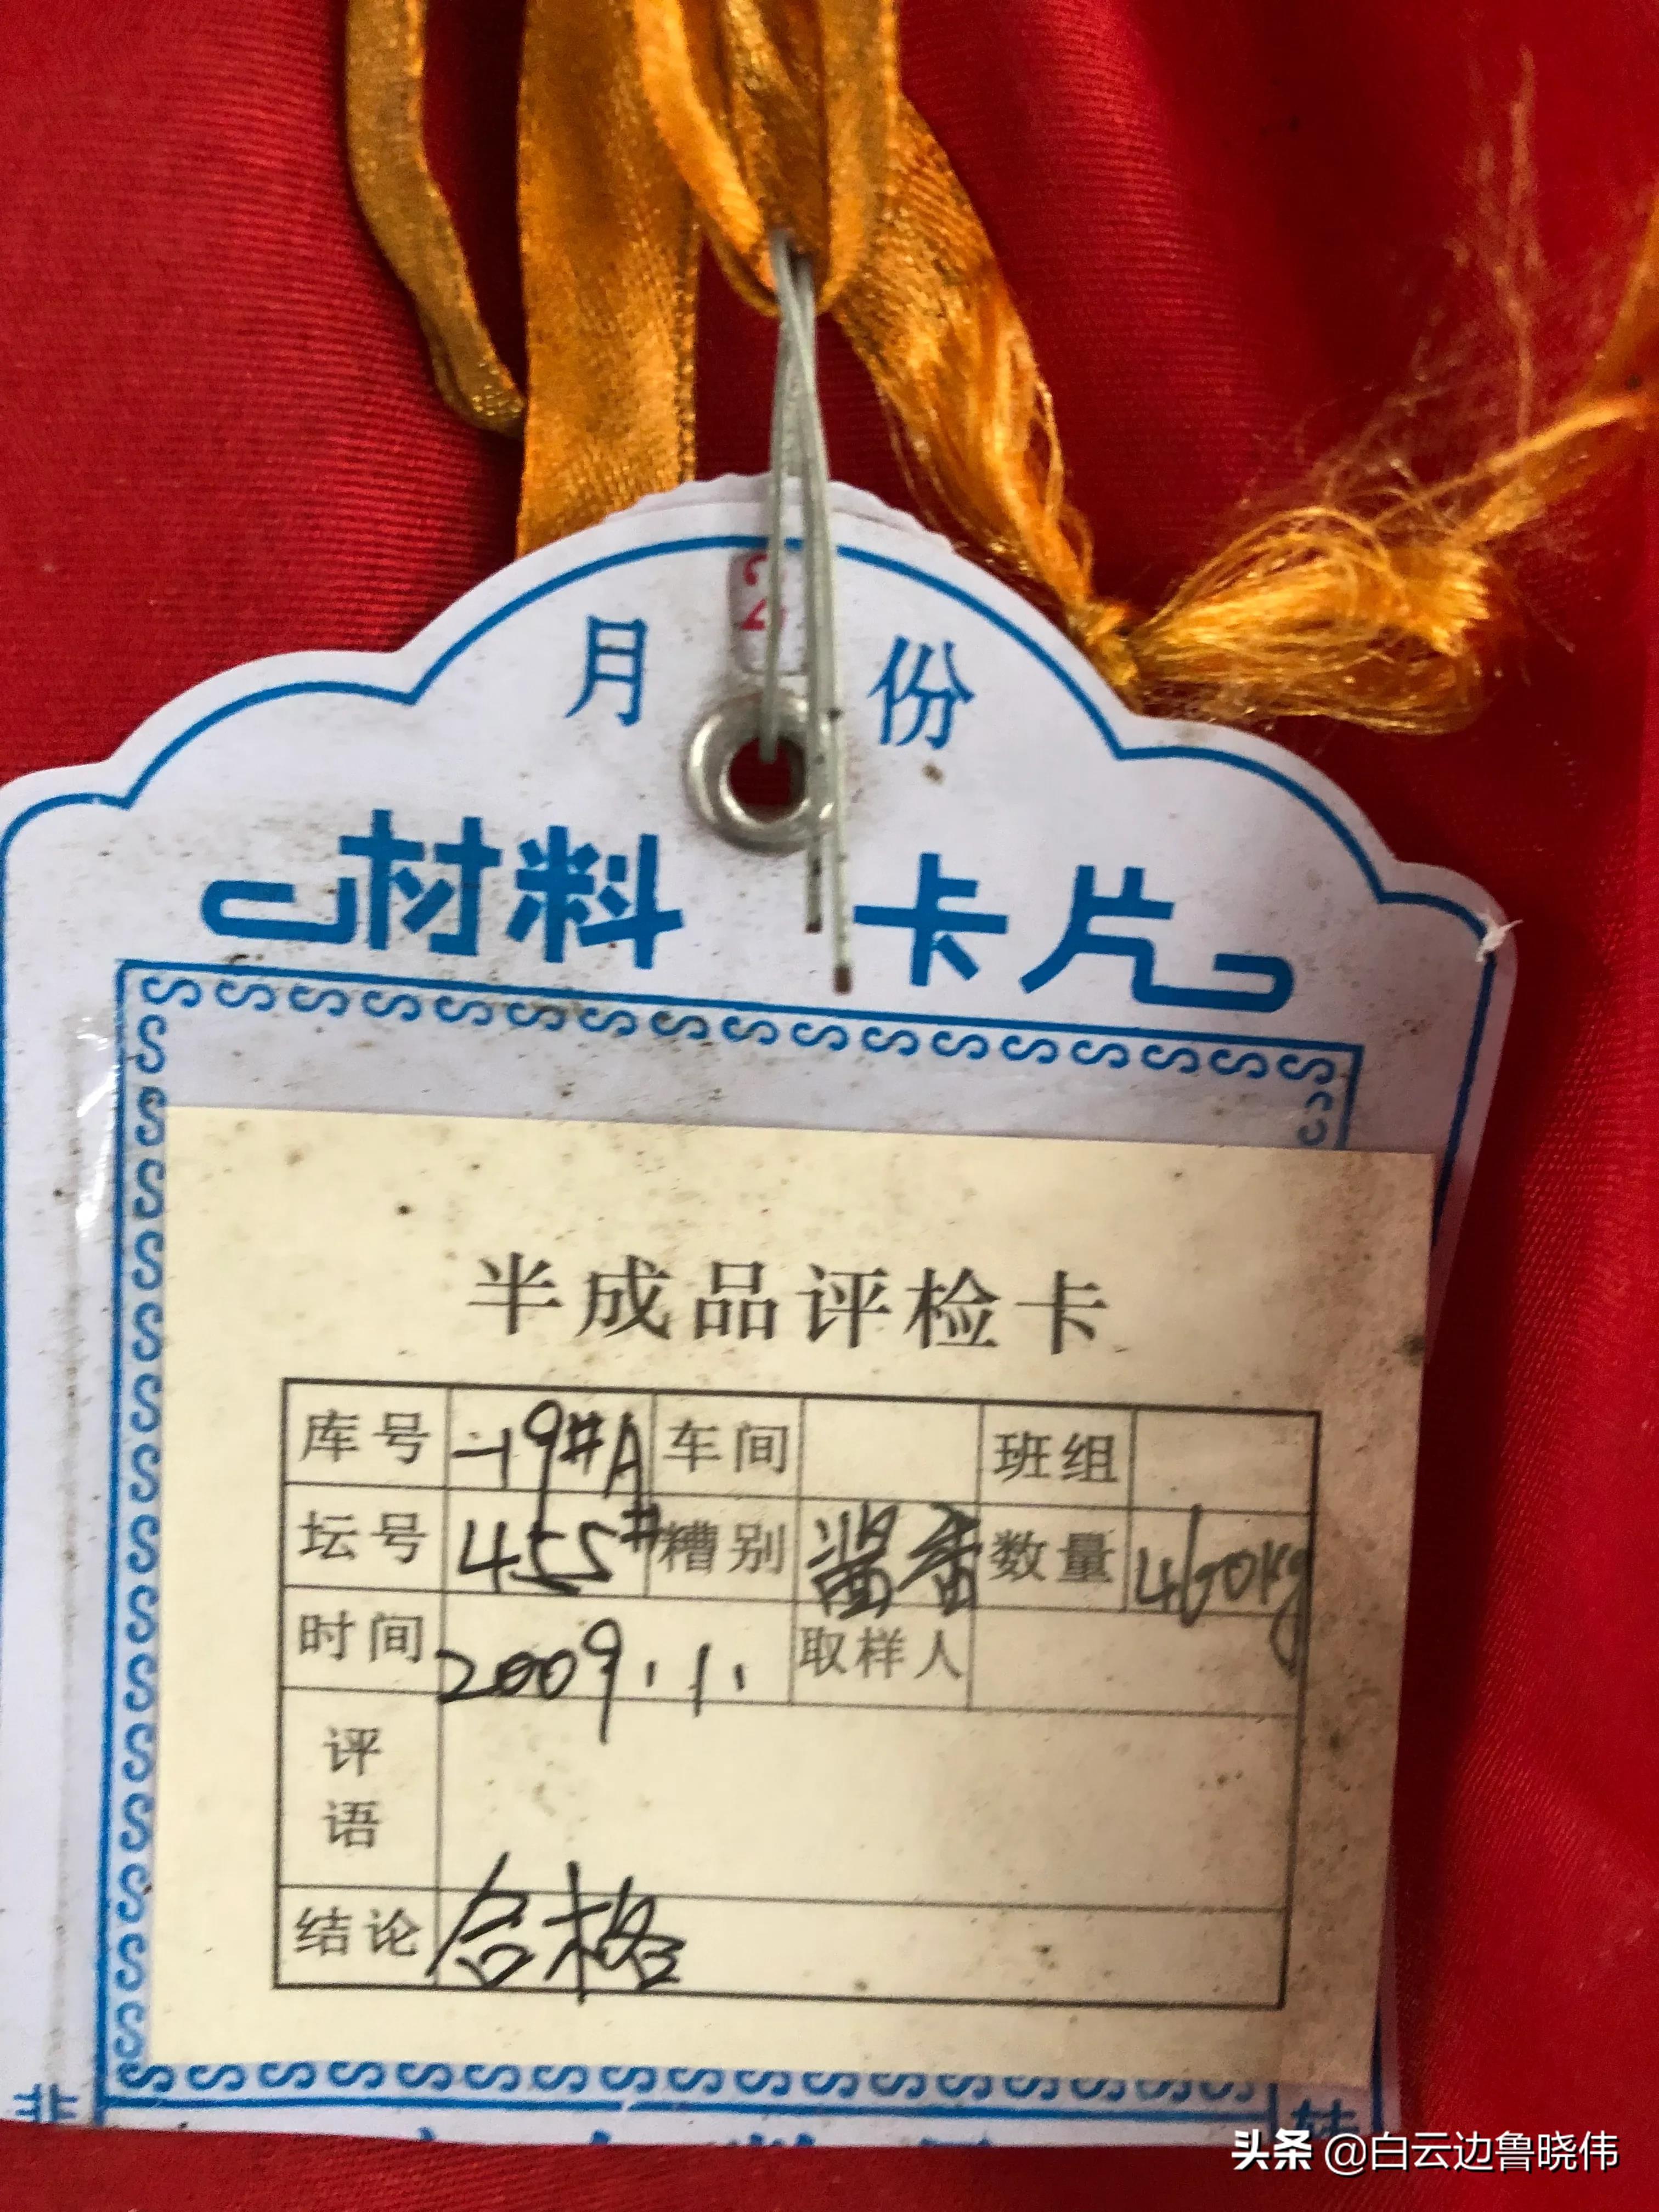 2
月 份
材料 卡片
半成品评检卡
库号 -19#A 车间 班组
坛号 455# 糟别 酱香 数量 460kg
时间 2009.1. 取样人
评语
结论 合格
头条 @白云边鲁晓伟